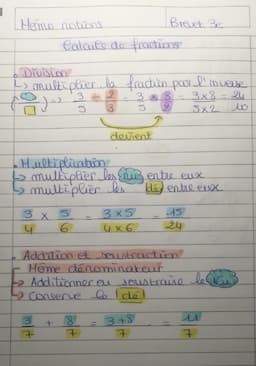 Mémo notions Brevet 3e
Calculs de fractions
• Division
↳ multiplier la fraction par l'inverse
=> 3/5 ÷ 2/8 = 3/5 × 8/2 = 3×8/5×2 = 24/10
devient
• Multiplication
↳ multiplier les nu entre eux
↳ multiplier les dé entre eux
3/4 × 5/6 = 3×5/4×6 = 15/24
• Addition et soustraction
Même dénominateur
↳ Additionner ou soustraire les nu
↳ Conserve le dé
3/7 + 8/7 = 3+8/7 = 11/7